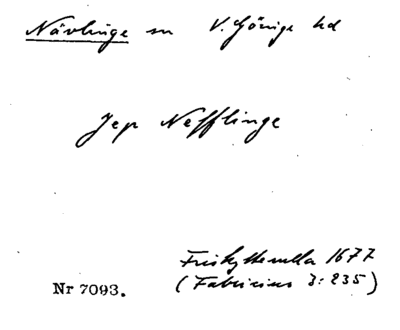 Nävlinge sn V. Göinge hd
Jep Nefflinge
Friskytterulla 1677
Nr 7093. (Fabricius 3:235)